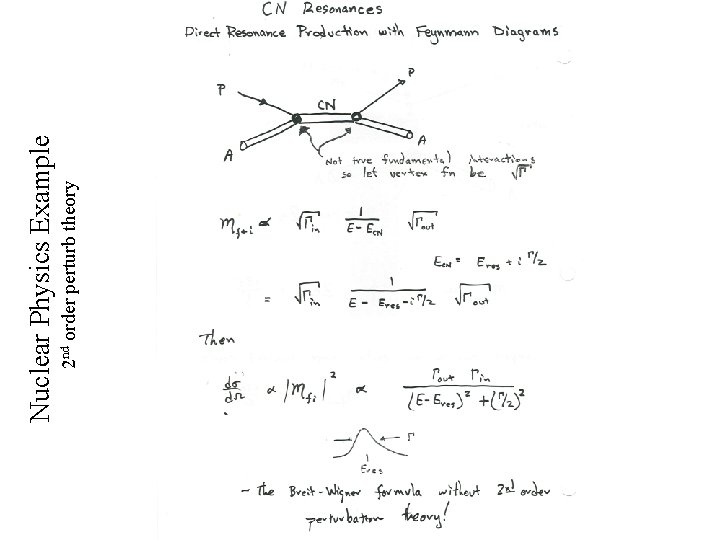 Nuclear Physics Example
2nd order perturb theory
CN Resonances
Direct Resonance Production with Feynmann Diagrams
P
P
CN
A
A
Not true fundamental interactions
so let vertex fn be √Γ
M_{f←i} ∝ √Γin 1/(E - E_CN) √Γout
E_CN = Eres + i Γ/2
= √Γin 1/(E - Eres - i Γ/2) √Γout
Then
dσ/dΩ ∝ |M_fi|² ∝ Γout Γin / ((E - Eres)² + (Γ/2)²)
Γ
Eres
- the Breit-Wigner formula without 2nd order
perturbation theory!